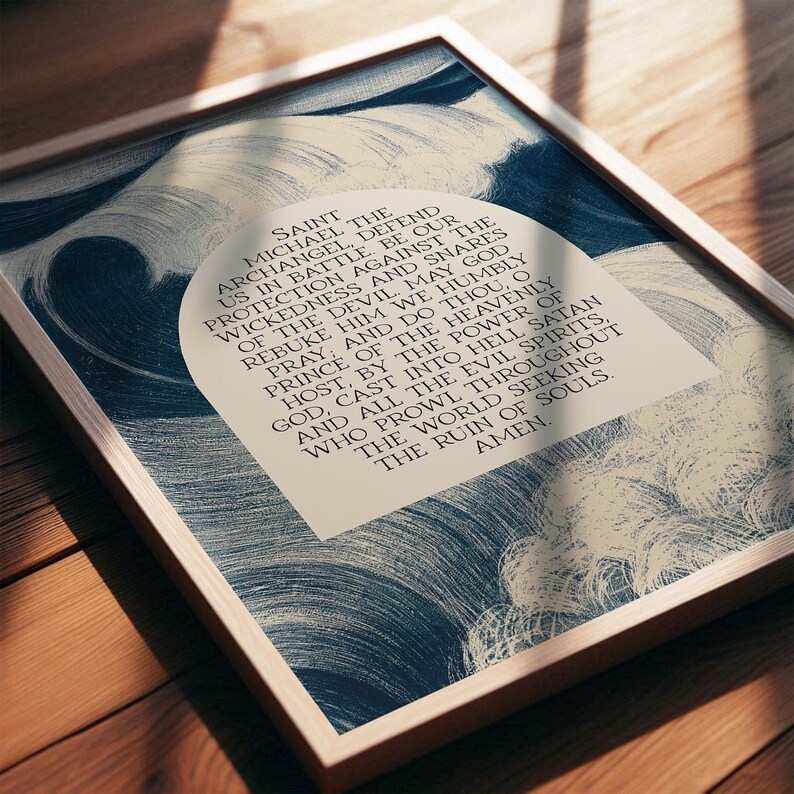 Saint
Michael the
Archangel, defend
us in battle. Be our
protection against the
wickedness and snares
of the Devil. May God
rebuke him we humbly
pray; and do thou, O
Prince of the Heavenly
Host, by the power of
God, cast into Hell Satan
and all the evil spirits,
who prowl throughout
the world seeking
the ruin of souls.
Amen.